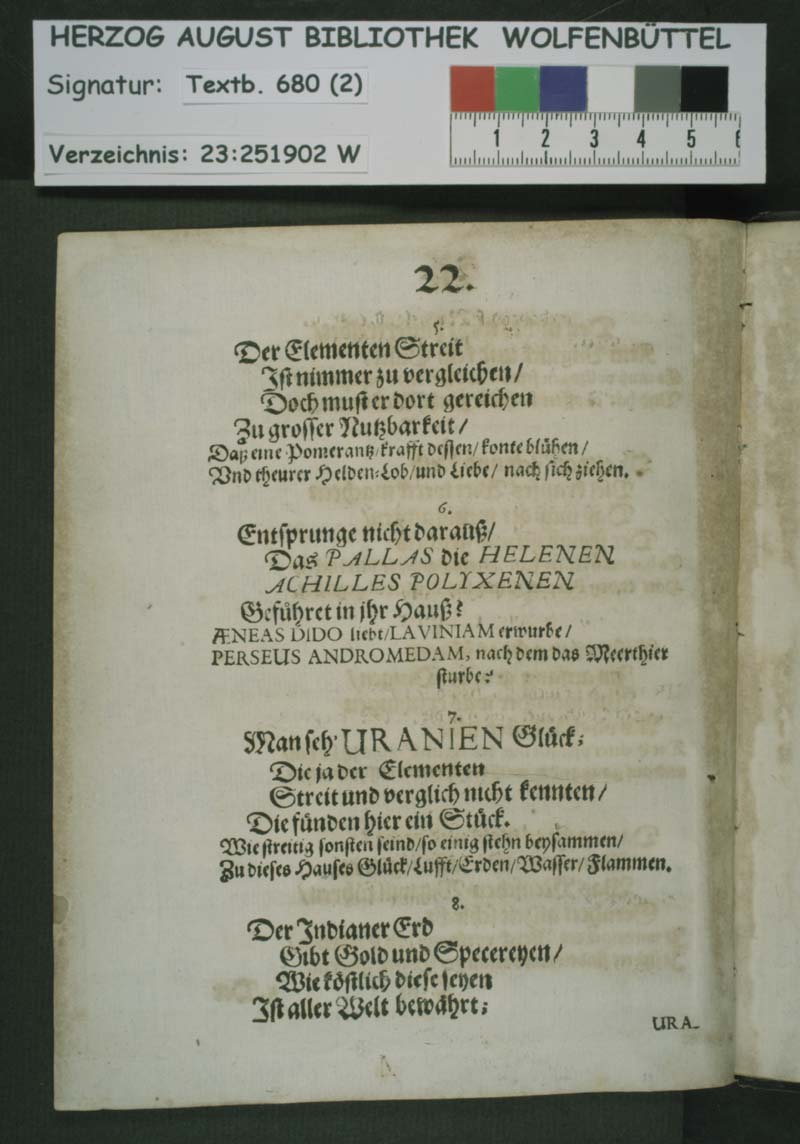 HERZOG AUGUST BIBLIOTHEK WOLFENBÜTTEL
Signatur: Textb. 680 (2)
Verzeichnis: 23:251902 W
1 2 3 4 5 6
22.
5.
Der Elementen Streit
Ist nimmer zu vergleichen/
Doch must er dort gereichen
Zu grosser Nutzbarkeit/
Daß eine Pomerantz/krafft dessen/konte blühen/
Vnd theurer Helden-Lob/und Liebe/ nach sich ziehen.
6.
Entsprunge nicht darauß/
Das PALLAS die HELENEN
ACHILLES POLYXENEN
Geführet in jhr Hauß?
ÆNEAS DIDO liebt/LAVINIAM erwurbe/
PERSEUS ANDROMEDAM, nach dem das Meerthier
sturbe?
7.
Man seh' URANIEN Glück;
Die ja der Elementen
Streit und verglich nicht kennten/
Die fünden hier ein Stück.
Wie streitig sonsten seind/so einig stehn beysammen/
Zu dieses Hauses Glück/Lufft/Erden/Wasser/Flammen.
8.
Der Indianer Erd
Gibt Gold und Specereyen/
Wie köstlich diese seyen
Ist aller Welt bewährt;
URA-